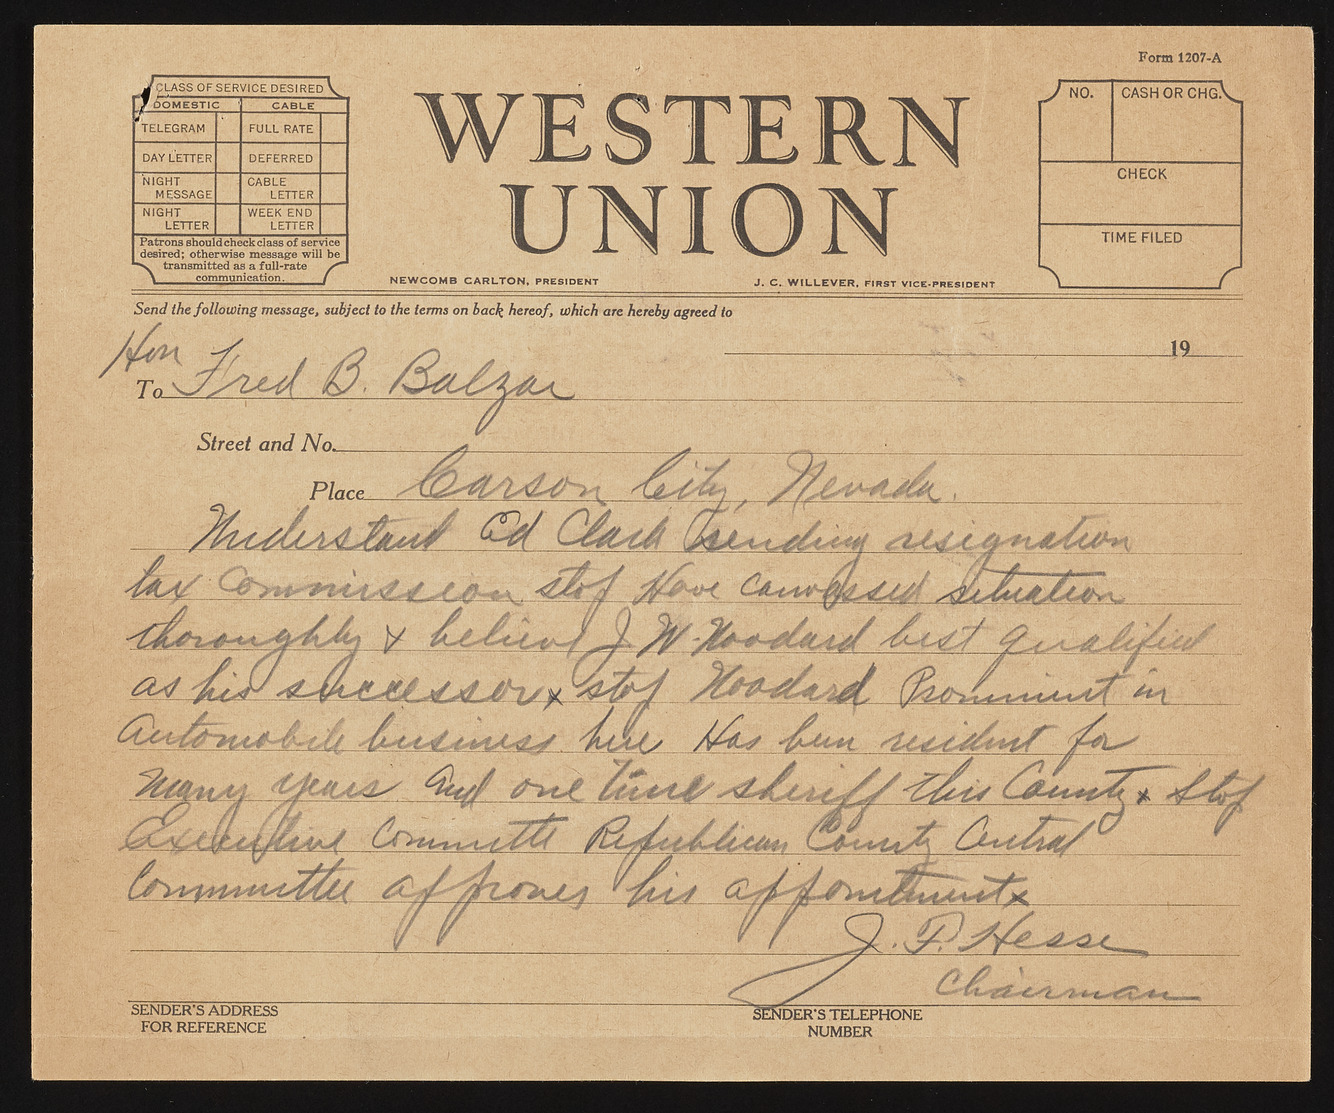 Form 1207-A
CLASS OF SERVICE DESIRED
DOMESTIC CABLE
TELEGRAM FULL RATE
DAY LETTER DEFERRED
NIGHT MESSAGE CABLE LETTER
NIGHT LETTER WEEK END LETTER
Patrons should check class of service
desired; otherwise message will be
transmitted as a full-rate
communication.
WESTERN
UNION
NEWCOMB CARLTON, PRESIDENT J. C. WILLEVER, FIRST VICE-PRESIDENT
NO. CASH OR CHG.
CHECK
TIME FILED
Send the following message, subject to the terms on back hereof, which are hereby agreed to
19
Hon
To Fred B. Balzar
Street and No.
Place Carson City, Nevada.
Understand Ed Clark sending resignation
tax Commission stop Have canvassed situation
thoroughly & believe J W. Woodard best qualified
as his successor x stop Woodard Prominent in
Automobile business here Has been resident for
Many years and one time sheriff this County x Stop
Executive Committe Republican County Central
Committee approves his appointment x
J. P. Hesse
Chairman
SENDER'S ADDRESS
FOR REFERENCE
SENDER'S TELEPHONE
NUMBER